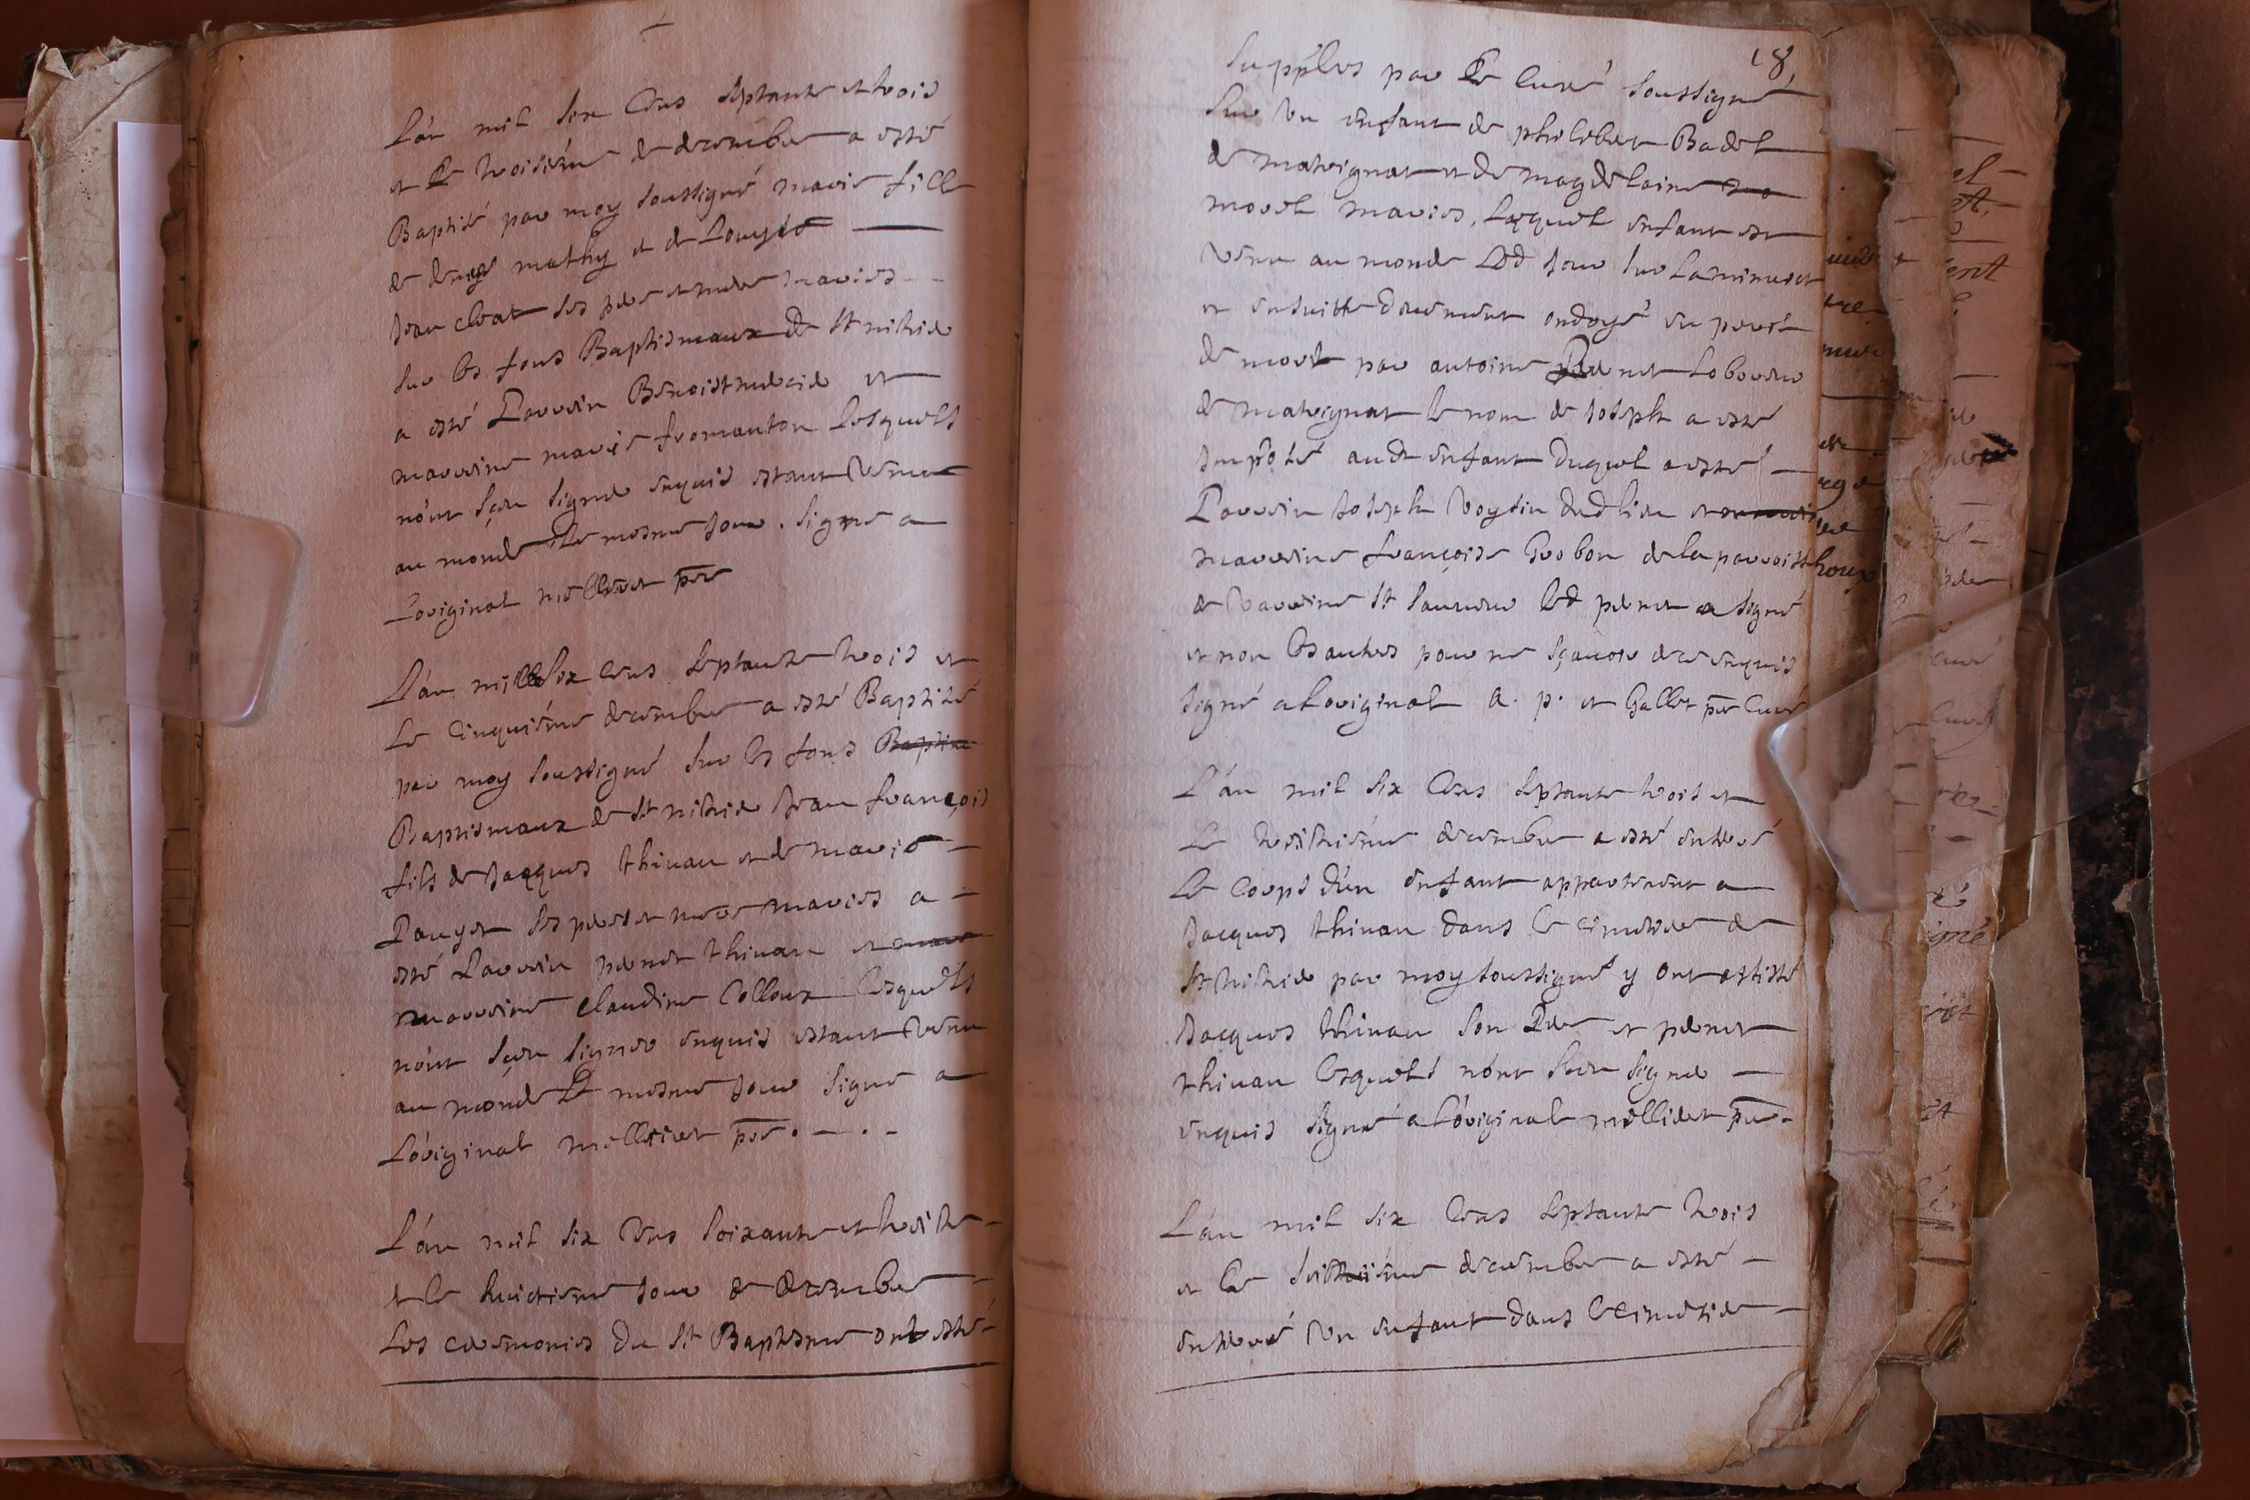 L'an mil six Cens septante et trois
et Le troisiéme de decembre a esté
Baptisé par moy soussigné marie fille
de mathy et de Louyse
Jean clerat ses pere et mere mariés
sur les fons Baptismaux de st nithier
a esté Parrein Benoist mercier et
marreine marie fromanton lesquels
nónt sçeu signer enquis estant venue
au monde Le mesme jour. signé a
Loriginal millieret pbre
L'an mille six cens septante trois et
Le cinquiéme decembre a esté Baptisé
par moy soussigné sur les fons Baptism
Baptismaux de st nithier Jean françois
fils de Jacques thivan et de marie
Pauget ses pere et mere mariés a
esté Parrein pernet thivan et marr
marreine claudine Colloux lesquels
nónt sçeu signer enquis estant venu
au monde Le mesme jour signé a
Lóriginal millieret pbre.
L'an mil six Cens soixante et treize
et le huictiéme jour de decembre
Les ceremonies du st Baptesme ont esté
18,
supplées par Le curé soussigné
sur un enfant de philebert Badel
de matrignat et de magdelaine mo
morel mariés, Lequel enfant est
venu au monde Led jour sur La minuict
et ensuitte deuement ondoyé en peril
de mort par antoine pernet Laboureur
de matrignat le nom de Joseph a esté
imposé aud enfant duquel a esté
Parrein Joseph Voysin dud lieu et
marreine françoise Grobon de la parroisse
de Varreine st sauveur led pernet a signé
et non les autres pour ne sçavoir de ce enquis
signé a Loriginal A. p. et Gallet pbre Curé
L'an mil six Cens septante trois et
Le treiziéme decembre a esté enterré
Le corps d'un enfant appartenent a
Jacques thivan dans le cimetiere de
st nithier par moy soussigné y ont assisté
Jacques thivan son Pere et pernet
thivan lesquels nónt sceu signer
enquis signé a Lóriginal millieret pbre
L'an mil six Cens septante trois
et Le seiziéme decembre a esté
enterré un enfant dans le cimetier